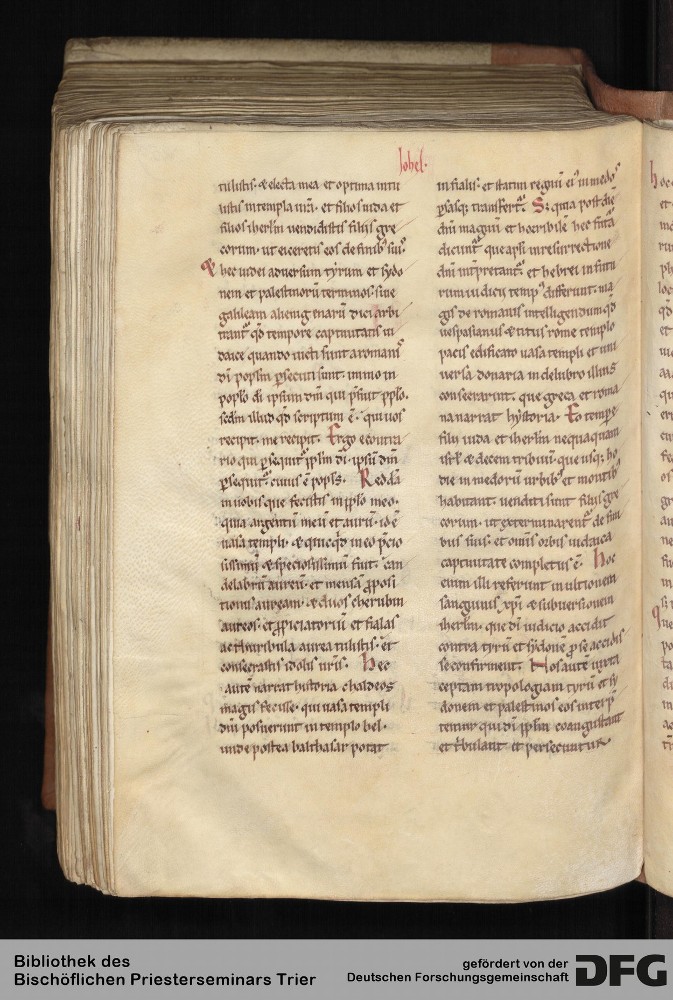 Johel.
tulistis. & electa mea et optima intu
listis in templa vr̄a. et filios iuda et
filios iherl̄m vendidistis filiis gre
corum. ut eiceretis eos de finibꝰ suiſ.
hec iudei adversum tyrum et sydo
nem et palestinorū terminos. siue
galileam alienigenarū dici arbi
trant̄. qd̄ tempore captiuitatis iu
daice quando uicti sunt a romanis
dī popl̄m ꝑsecuti sunt. immo in
popl̄o dī ipsum dn̄m qui p̄fuit ppl̄o.
scdm̄ illud qd̄ scriptum ē. qui uos
recipit. me recipit. Ergo econtra
rio qui ꝑsequit̄ ppl̄m dī. ipsū dn̄m
ꝑsequit̄. cuius ē popl̄s. Reddā
in uobis que fecistis in ppl̄o meo.
quia argentū meū et aurū. id ē
uasa templi. & quicqd̄ in eo p̄cio
sissimū & speciosissimū fuit. can
delabrū aureū. et mensā ꝓposi
tionis auream. & duos cherubim
aureos. et ꝓpiciatoriū et fialas
ac thuribula aurea tulistis. et
consecrastis idolis ur̄is. Hec
autē narrat historia chaldeos
magis fecisse. qui uasa templi
dn̄i posuerunt in templo bel.
unde postea balthasar potat
in fialis. et statim regnū eiꝰ in medos
ꝑsasqꝫ transfert̄. Sꝫ quia post diē
dn̄i magnū et horribilē hec futā
dicunt̄. que apl̄i in resurrectione
dn̄i int̄pretant̄. et hebrei in futu
rum iudicii tempꝰ differunt. ma
gis de romanis intelligendum. qd̄
uespasianus & titus rome templo
pacis edificato uasa templi et uni
uersa donaria in delubro illius
consecrarint. que greca et roma
na narrat hystoria. Eo tempe
filii iuda et iherl̄m nequaquam
isrl̄ & decem tribuū. que usqꝫ ho
die in medorū urbibꝰ et montibꝰ
habitant. uenditi sunt filiis gre
corum. ut exterminarent̄ de fini
bus suis. et omīs orbis iudaica
captiuitate completus ē. Hoc
enim illi referunt in ultionem
sanguinis xp̄i & subuersionem
iherl̄m. que dī iudicio accidit
contra tyrū et sydonē ꝓ se accidisse
se confirment. Nos autē iuxta
ceptam tropologiam tyrū et sy
donem et palestinos eos interp̄
temur. qui dī ppl̄m coangustant
et tribulant et persecuntur.
Bibliothek des
Bischöflichen Priesterseminars Trier
gefördert von der
Deutschen Forschungsgemeinschaft
DFG